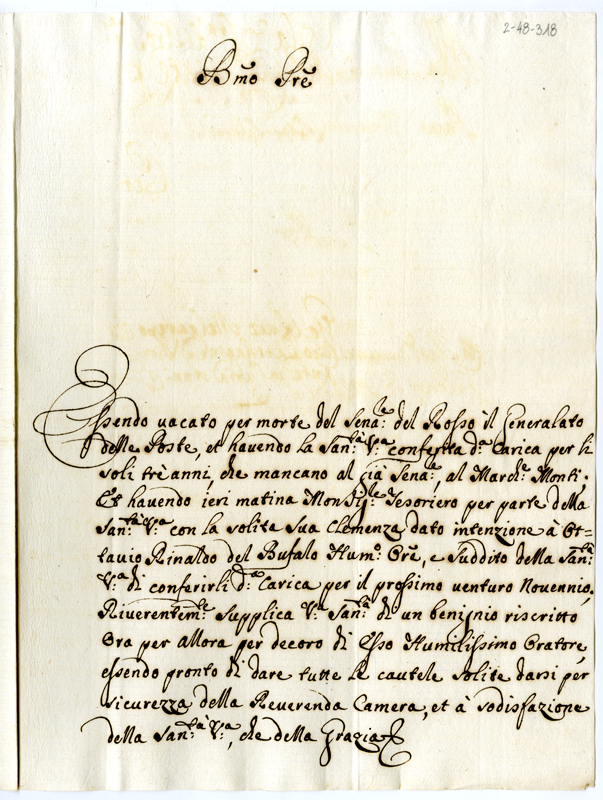 2-48-318
Bmo Prē
Essendo vacato per morte del Sen:ᵃ del Rosso il Generalato
delle Poste, et havendo la San:ᵗᵃ V:ᵃ conferita d:ᵃ Carica per li
soli trè anni, che mancano al già Sen:ᵃ, al March:ᵉ Monti;
Et havendo ieri matina Monsig:ʳᵉ Tesoriero per parte della
San:ᵗᵃ V:ᵃ con la solita sua Clemenza dato intenzione à Ot=
tavio Rinaldo del Bufalo Hum:ᵒ Orē, e Suddito della San:ᵗᵃ
V:ᵃ di conferirli d:ᵃ Carica per il prossimo venturo Novennio.
Riverentem:ᵗᵉ supplica V:ᵃ San:ᵗᵃ di un benignio riscritto
Ora per allora per decoro di Esso Humilissimo Oratore,
essendo pronto di dare tutte le cautele solite darsi per
sicurezza della Reverenda Camera, et à sodisfazione
della San:ᵗᵃ V:ᵃ, che della Grazia